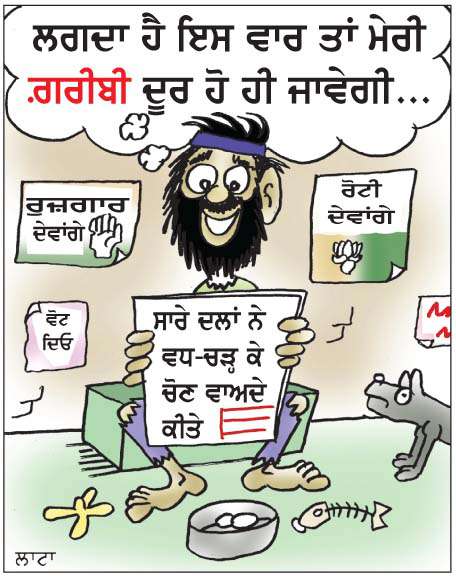 ਲਗਦਾ ਹੈ ਇਸ ਵਾਰ ਤਾਂ ਮੇਰੀ
ਗ਼ਰੀਬੀ ਦੂਰ ਹੋ ਹੀ ਜਾਵੇਗੀ...
ਰੁਜ਼ਗਾਰ
ਦੇਵਾਂਗੇ
ਰੋਟੀ
ਦੇਵਾਂਗੇ
ਵੋਟ
ਦਿਓ
ਸਾਰੇ ਦਲਾਂ ਨੇ
ਵਧ-ਚੜ੍ਹ ਕੇ
ਚੋਣ ਵਾਅਦੇ
ਕੀਤੇ
ਲਾਟਾ